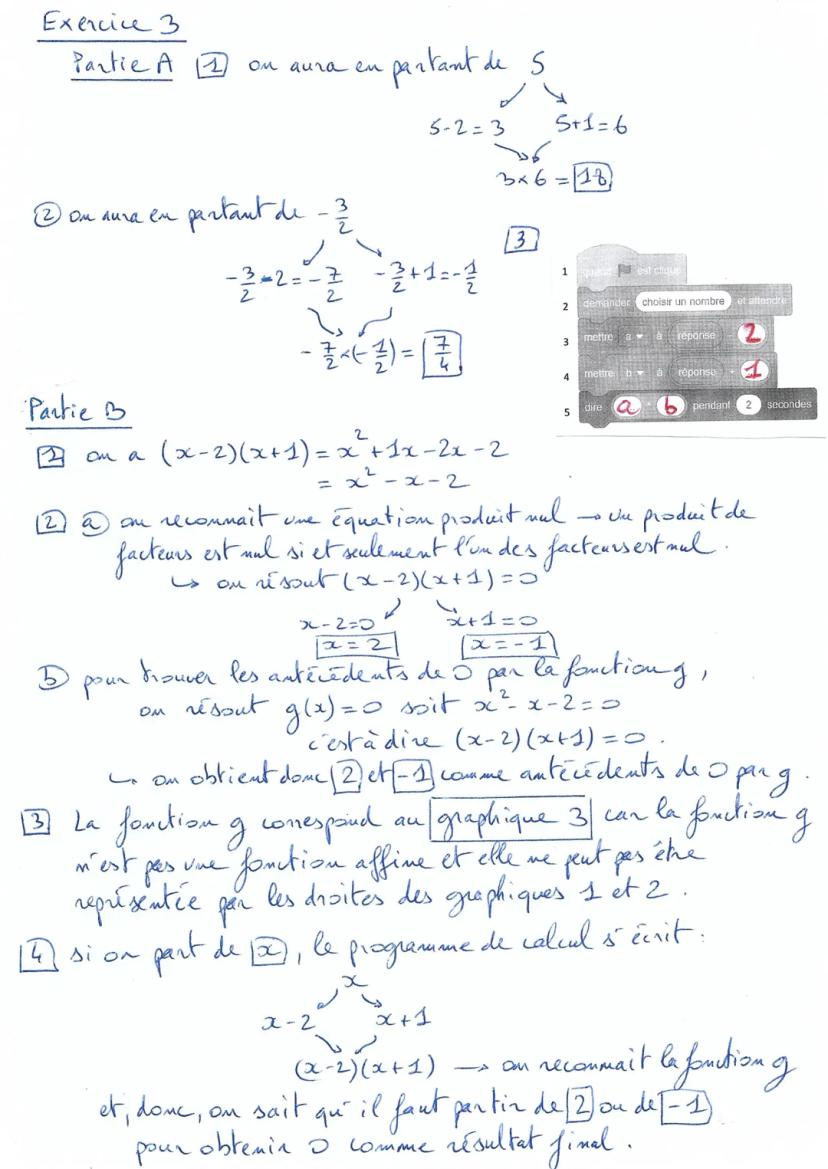 Exercice 3
Partie A 1 on aura en partant de 5
5-2=3 5+1=6
3×6=18
2 on aura en partant de -3/2
-3/2-2=-7/2 -3/2+1=-1/2
-7/2×(-1/2)=7/4
3
1 quand est cliqué
2 demander choisir un nombre et attendre
3 mettre a à réponse - 2
4 mettre b à réponse + 1
5 dire a * b pendant 2 secondes
Partie B
1 on a (x-2)(x+1)=x²+1x-2x-2
= x²-x-2
2 a on reconnait une équation produit nul → un produit de
facteurs est nul si et seulement l'un des facteurs est nul.
↳ on résout (x-2)(x+1)=0
x-2=0 x+1=0
x=2 x=-1
b pour trouver les antécédents de 0 par la fonction g,
on résout g(x)=0 soit x²-x-2=0
c'est à dire (x-2)(x+1)=0.
↳ on obtient donc 2 et -1 comme antécédents de 0 par g.
3 La fonction g correspond au graphique 3 car la fonction g
n'est pas une fonction affine et elle ne peut pas être
représentée par les droites des graphiques 1 et 2.
4 si on part de x, le programme de calcul s'écrit:
x
x-2 x+1
(x-2)(x+1) → on reconnait la fonction g
et, donc, on sait qu'il faut partir de 2 ou de -1
pour obtenir 0 comme résultat final.